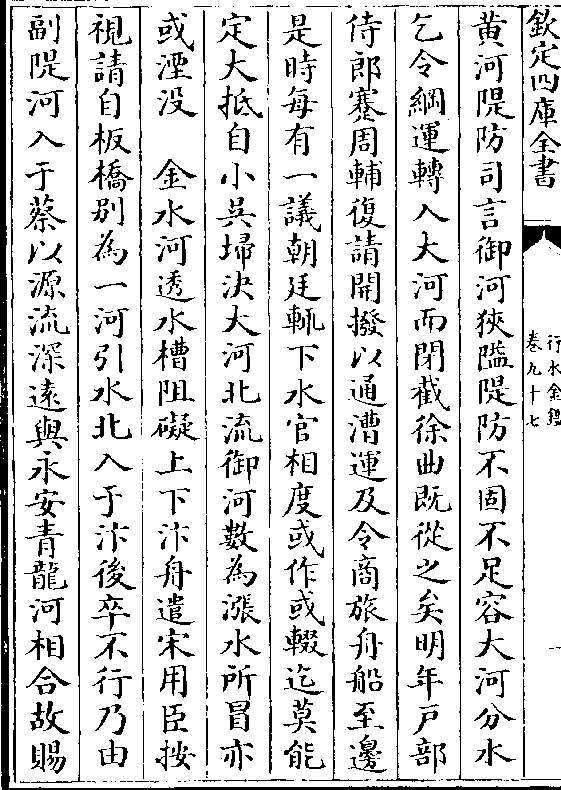 欽定四庫全書
行水金鑑
卷九十七
一
黄河隄防司言御河狹隘隄防不固不足容大河分水
乞令綱運轉入大河而閉截徐曲既從之矣明年戸部
侍郎蹇周輔復請開撥以通漕運及令商旅舟船至邊
是時每有一議朝廷輒下水官相度或作或輟迄莫能
定大抵自小吳埽決大河北流御河數為漲水所冒亦
或湮没　金水河透水槽阻礙上下汴舟遣宋用臣按
視請自板橋别為一河引水北入于汴後卒不行乃由
副隄河入于蔡以源流深遠與永安青龍河相合故賜